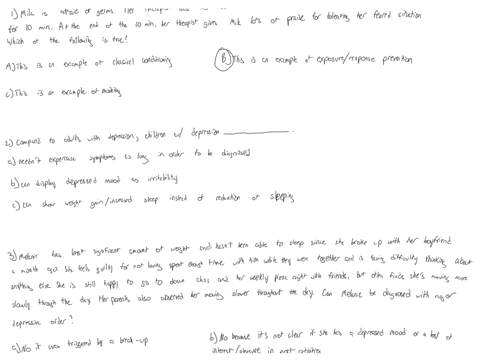 1) Mila is afraid of germs. Her therapist has
for 10 min. At the end of the 10 min, her therapist gives Mila lots of praise for tolerating her feared situation
Which of the following is true?
A) This is an example of classical conditioning
B) This is an example of exposure/response prevention
c) This is an example of modeling
2) Compared to adults with depression, children w/ depression ___________.
a) needn't experience symptoms as long in order to be diagnosed
b) can display depressed mood as irritability
c) can show weight gain/increased sleep instead of reduction of sleeping
3) Melanie has lost significant amount of weight and hasn't been able to sleep since she broke up with her boyfriend
a month ago. She feels guilty for not having spent enough time with him while they were together and is having difficulty thinking about
anything else. She is still happy to go to dance class and her weekly pizza night with friends, but often finds she's moving more
slowly through the day. Her parents also observed her moving slower throughout the day. Can Melanie be diagnosed with major
depressive disorder?
a) No it was triggered by a break-up
b) No because it's not clear if she has a depressed mood or a loss of
interest/pleasure in most activities